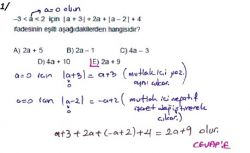 1/ a=0 olsun
-3 < a < 2 için |a + 3| + 2a + |a – 2| + 4
ifadesinin eşiti aşağıdakilerden hangisidir?
A) 2a + 5 B) 2a – 1 C) 4a – 3
D) 4a + 10 E) 2a + 9
a=0 için |a+3| = a+3 (mutlak içi poz. aynı çıkar.
a=0 için |a-2| = -a+2 (mutlak içi negatif işaret değiştirerek çıkar.
a+3 + 2a + (-a+2) + 4 = 2a+9 olur.
CEVAP: E